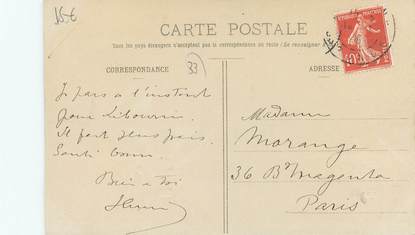 15 €
CARTE POSTALE
Tous les pays étrangers n'acceptent pas la correspondance au recto (Se renseigner
CORRESPONDANCE
33
ADRESSE
Je pars à l'instant
pour Libourne.
Il fait plus frais.
Santé bonne.
Bien à toi
Henri
Madame
Morange
36 Bd Magenta
Paris